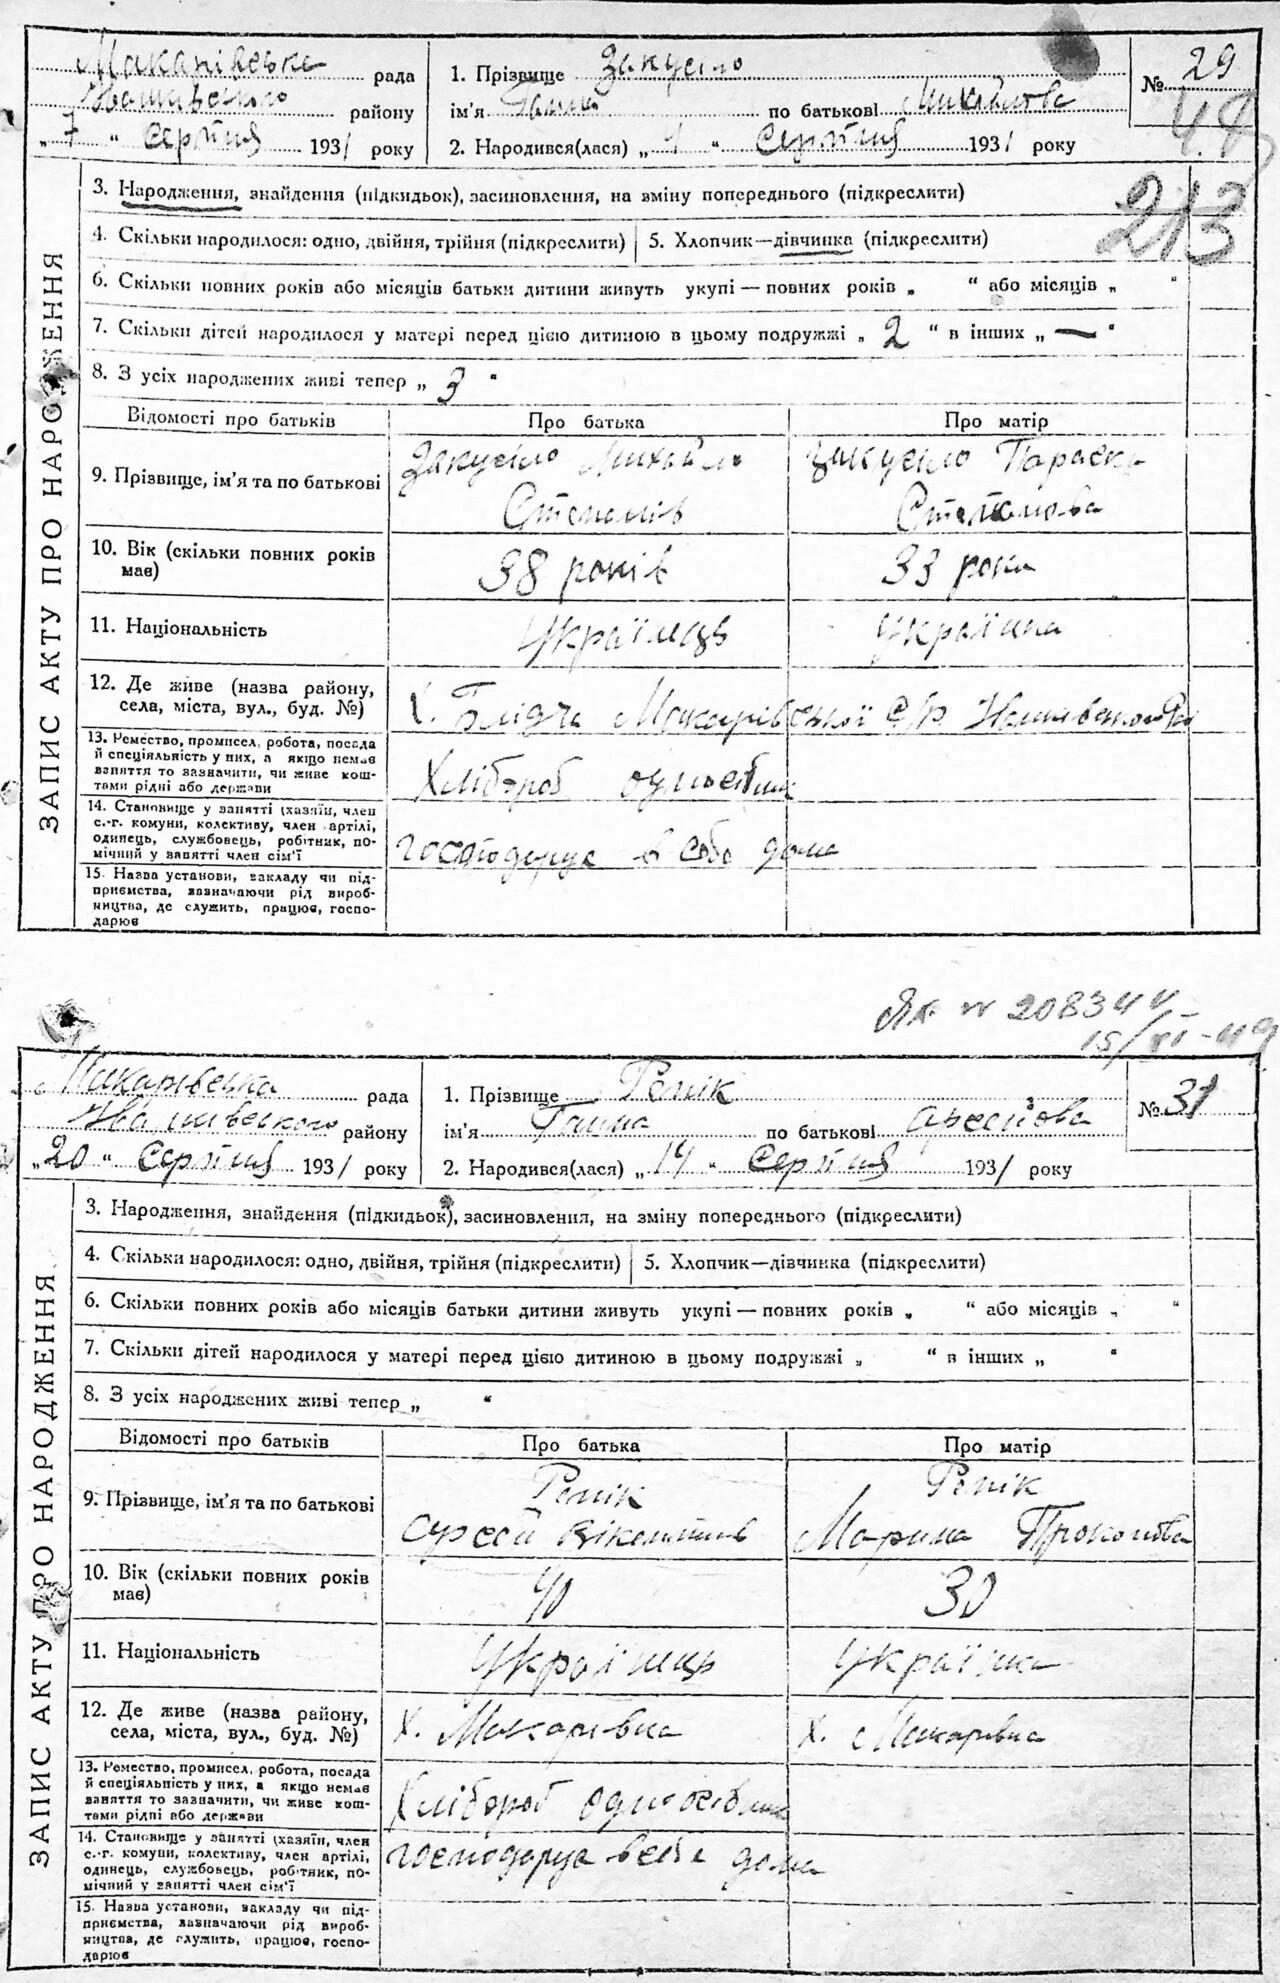 Макарівська рада
Іванківського району
„ 7 “ Серпня 1931 року
1. Прізвище Закусіло
ім’я Ганна по батькові Михайлова
2. Народився(лася) „ 4 “ Серпня 1931 року
№ 29
48
213
ЗАПИС АКТУ ПРО НАРОДЖЕННЯ
3. Народження, знайдення (підкидьок), засиновлення, на зміну попереднього (підкреслити)
4. Скільки народилося: одно, двійня, трійня (підкреслити) 5. Хлопчик—дівчинка (підкреслити)
6. Скільки повних років або місяців батьки дитини живуть укупі — повних років „ “ або місяців „ “
7. Скільки дітей народилося у матері перед цією дитиною в цьому подружжі „ 2 “ в інших „ — “
8. З усіх народжених живі тепер „ 3 “
Відомості про батьків Про батька Про матір
9. Прізвище, ім’я та по батькові
Закусіло Михайло
Степанів
Закусіло Параска
Степанова
10. Вік (скільки повних років має)
38 років 33 роки
11. Національність Українець Україінка
12. Де живе (назва району,
села, міста, вул., буд. №)
Х. Блідча Макарівської С/Р. Іванківського
13. Ремество, промисел, робота, посада
й спеціяльність у них, а якщо немає
заняття то зазначити, чи живе кош-
тами рідні або держави
Хлібороб
14. Становище у занятті (хазяїн, член
с.-г. комуни, колективу, член артілі,
одинець, службовець, робітник, по-
мічний у занятті член сім’ї
господарує в себе дома
15. Назва установи, закладу чи під-
приємства, зазначаючи рід вироб-
ництва, де служить, працює, госпо-
дарює
208344
15/VI-49
Макарівська рада
Іванківського району
„ 20 “ Серпня 1931 року
1. Прізвище Репік
ім’я Ганна по батькові Арсейова
2. Народився(лася) „ 14 “ Серпня 1931 року
№ 31
ЗАПИС АКТУ ПРО НАРОДЖЕННЯ
3. Народження, знайдення (підкидьок), засиновлення, на зміну попереднього (підкреслити)
4. Скільки народилося: одно, двійня, трійня (підкреслити) 5. Хлопчик—дівчинка (підкреслити)
6. Скільки повних років або місяців батьки дитини живуть укупі — повних років „ “ або місяців „ “
7. Скільки дітей народилося у матері перед цією дитиною в цьому подружжі „ “ в інших „ “
8. З усіх народжених живі тепер „ “
Відомості про батьків Про батька Про матір
9. Прізвище, ім’я та по батькові
Репік
Арсей
Репік
Марина Прокопова
10. Вік (скільки повних років
має)
40 30
11. Національність Українець Українка
12. Де живе (назва району,
села, міста, вул., буд. №)
Х. Макарівка Х. Макарівка
13. Ремество, промисел, робота, посада
й спеціяльність у них, а якщо немає
заняття то зазначити, чи живе кош-
тами рідні або держави
Хлібороб одноосібник
14. Становище у занятті (хазяїн, член
с.-г. комуни, колективу, член артілі,
одинець, службовець, робітник, по-
мічний у занятті член сім’ї
господарує в себе дома
15. Назва установи, закладу чи під-
приємства, зазначаючи рід вироб-
ництва, де служить, працює, госпо-
дарює